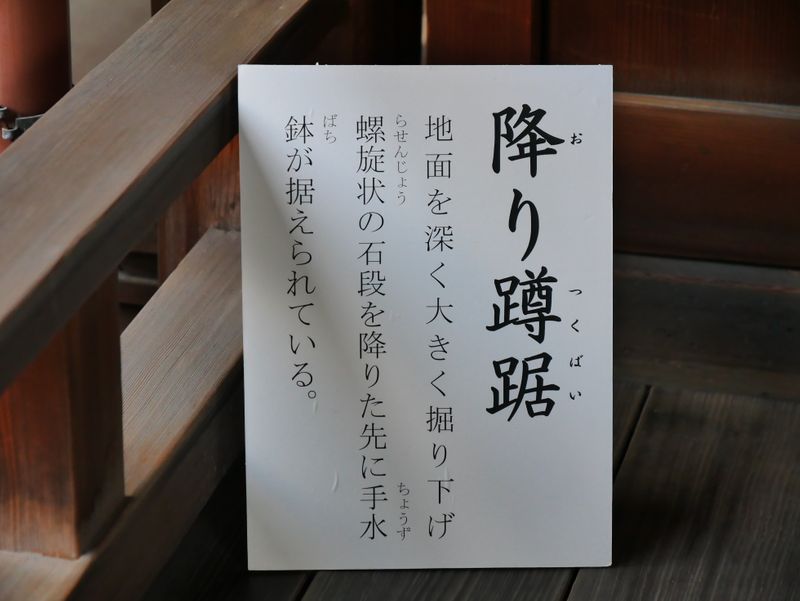 降り蹲踞
お
つくばい
地面を深く大きく掘り下げ
螺旋状の石段を降りた先に手水
らせんじょう
ちょうず
鉢が据えられている。
ばち